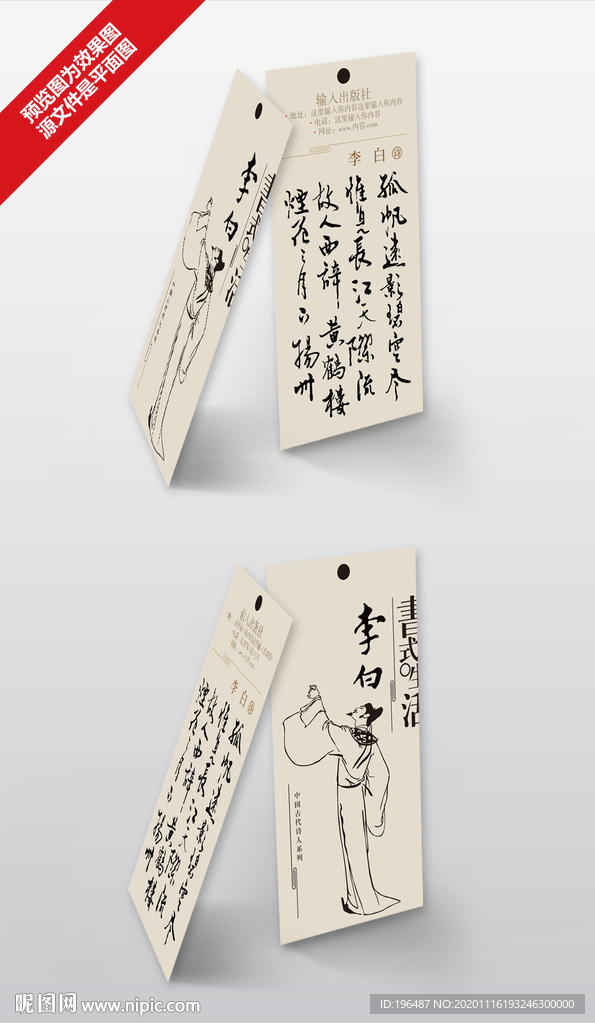 预览图为效果图
源文件是平面图
输入出版社
• 地址：这里输入你内容这里输入你内容
• 电话：这里输入你内容
• 网址：www.内容.com
李白 詩
孤帆遠影碧空尽
惟見長江天際流
故人西辭黄鶴樓
煙花三月下揚州
李白
输入出版社
李白
孤帆遠影碧空尽
惟見長江天際流
故人西辭黄鶴樓
煙花三月下揚州
書式生活
李白
中国古代诗人系列
昵图网 www.nipic.com
ID:196487 NO:20201116193246300000